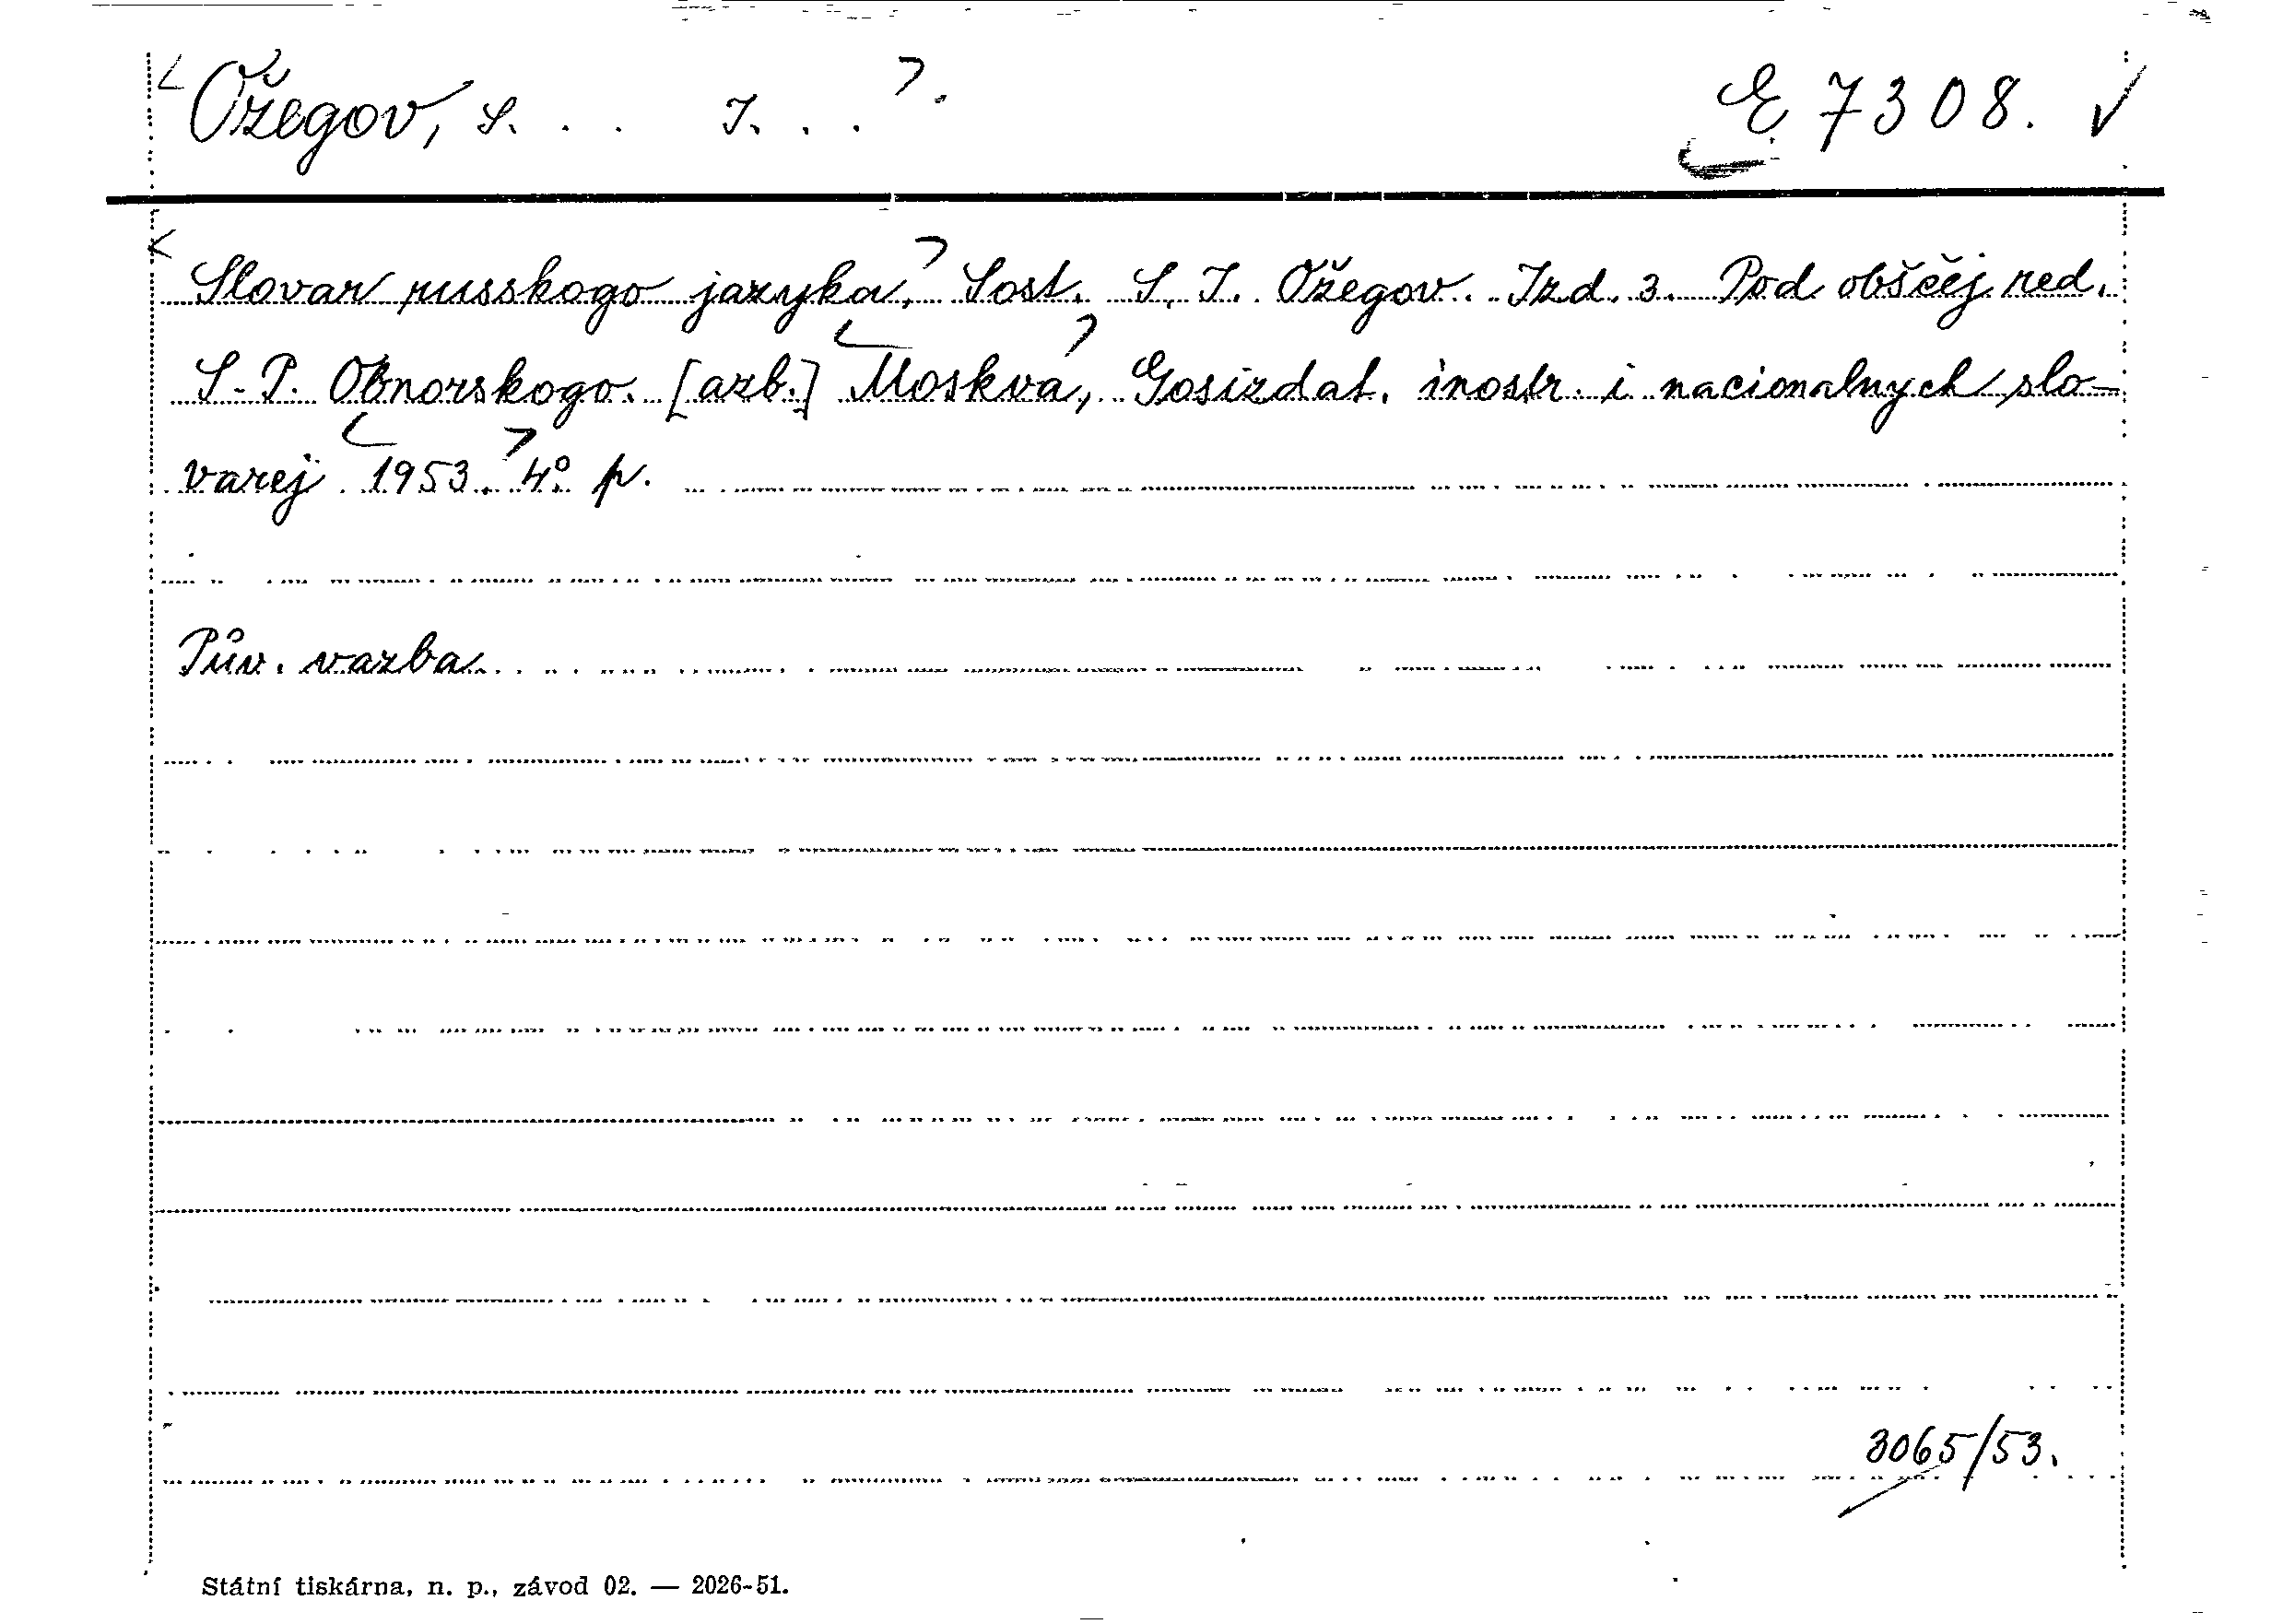 Ožegov, S. . . I. . .
E 7308.
Slovar russkogo jazyka, Sost. S. I. Ožegov. Izd. 3. Pod obščej red.
S. P. Obnorskogo. [azb.] Moskva, Gosizdat. inostr. i nacionalnych slo-
varej 1953. 4° p.
Pův. vazba.
3065/53.
Státní tiskárna, n. p., závod 02. — 2026-51.